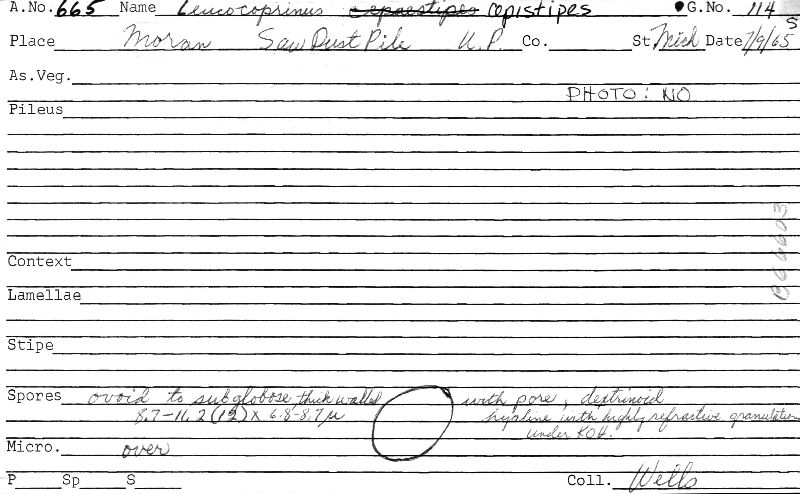 A.No. 665 Name Leucocoprinus cepaestipes cepistipes G.No. 114 S
Place Moran Saw Dust Pile U.P. Co. St Mich Date 7/9/65
As.Veg.
PHOTO: NO
Pileus
Context
Lamellae
Stipe
Spores ovoid to subglobose thick walled with pore, dextrinoid
8.7-11.2(12) x 6.8-8.7 µ hyaline with highly refractive granulation
under KOH.
Micro. over
P Sp S Coll. Wells